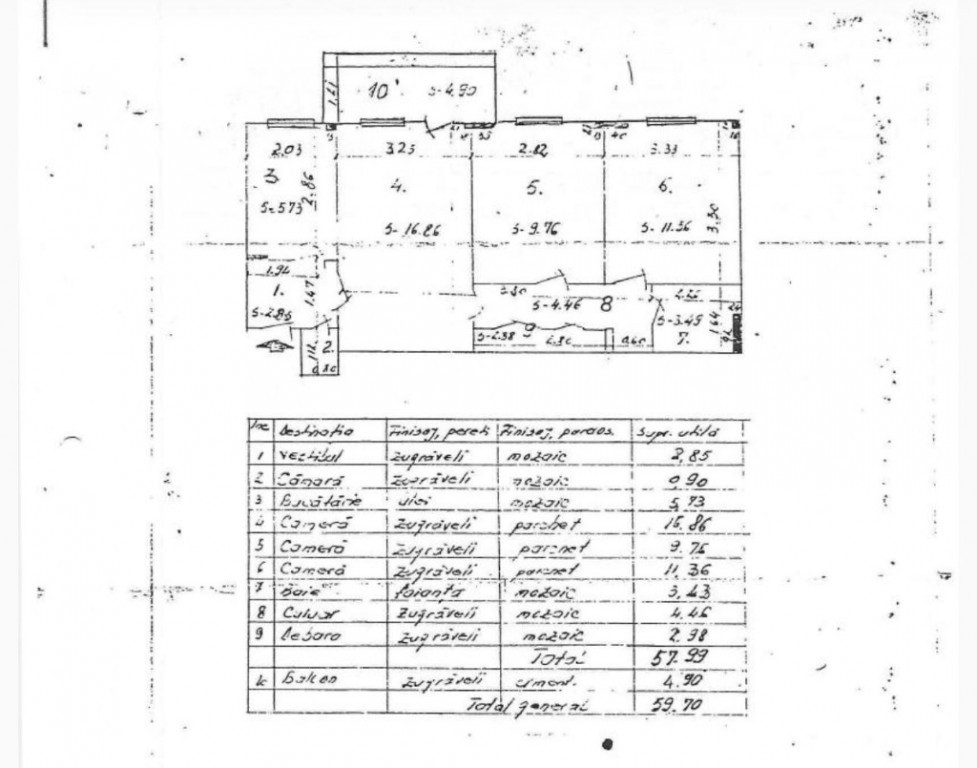 1.21
10
S-4.90
2.03
3.23
2.82
3.33
3.
2.86
S-5.73
4.
S-16.86
5.
S-9.76
6.
S-11.36
3.30
1.94
1.
1.47
S-2.85
2.
1.12
0.80
S-4.46
8
9
S-2.98
0.60
S-3.43
7.
1.64
Destinatia Finisaj, pereti Finisaj, pardos. Supr. utilă
1 Vestibul Zugrăveli mozaic 2,85
2 Cămară Zugrăveli mozaic 0.90
3 Bucătărie ulei mozaic 5,73
4 Cameră Zugrăveli parchet 16,86
5 Cameră Zugrăveli parchet 9.76
6 Cameră Zugrăveli parchet 11.36
7 Baie faianta mozaic 3,43
8 Culuar Zugrăveli mozaic 4.46
9 Debara Zugrăveli mozaic 2.98
Total 57.99
Balcon Zugrăveli ciment. 4.90
Total general 59.70